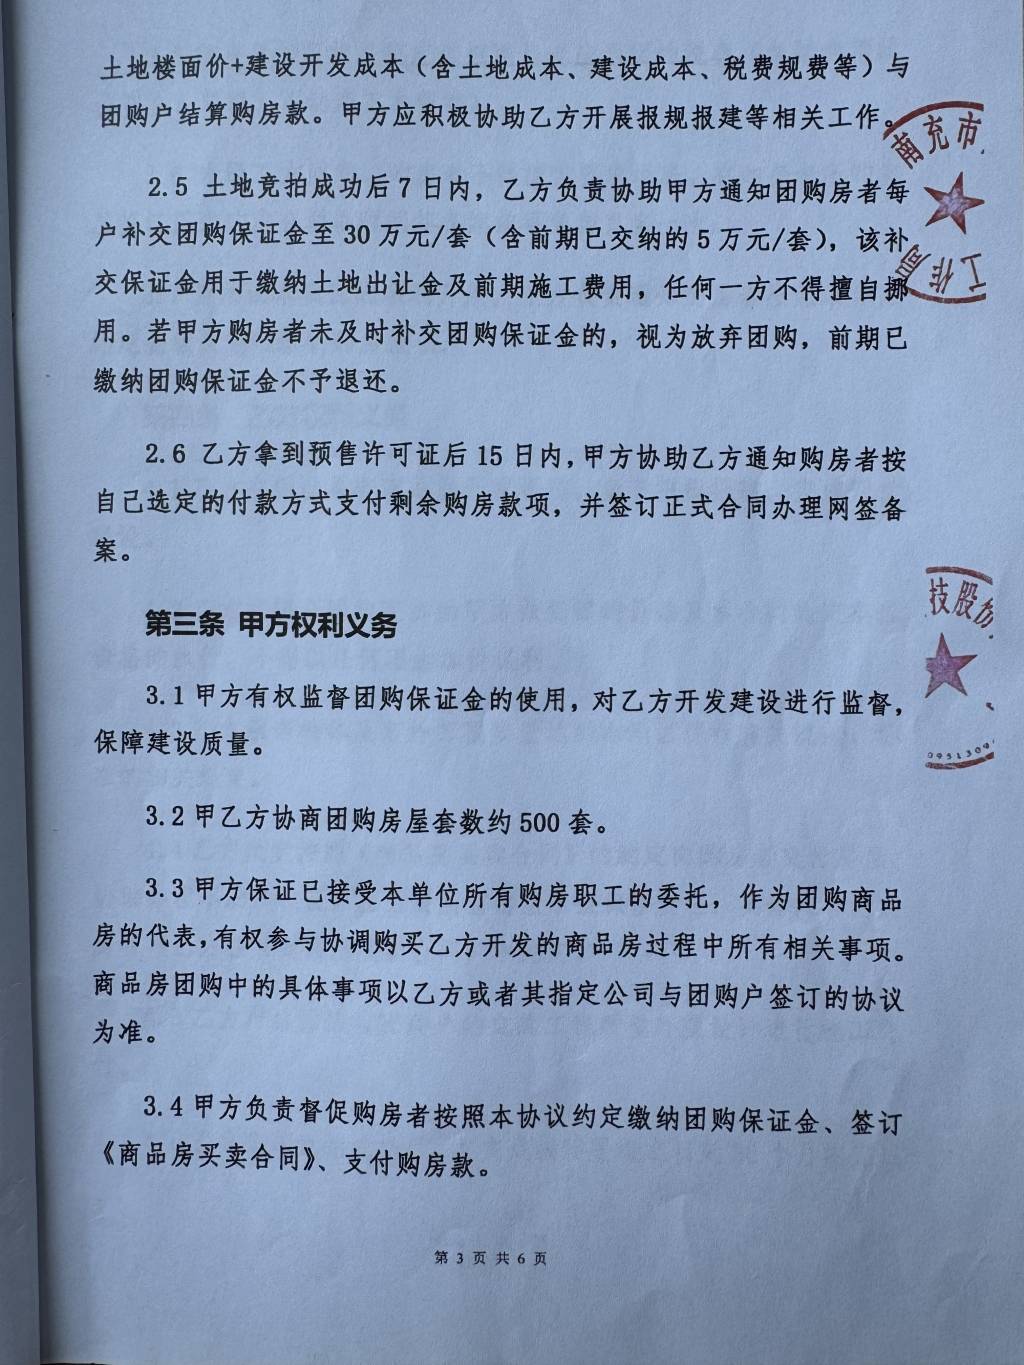 土地楼面价+建设开发成本（含土地成本、建设成本、税费规费等）与
团购户结算购房款。甲方应积极协助乙方开展报规报建等相关工作。
2.5 土地竞拍成功后7日内，乙方负责协助甲方通知团购房者每
户补交团购保证金至30万元/套（含前期已交纳的5万元/套），该补
交保证金用于缴纳土地出让金及前期施工费用，任何一方不得擅自挪
用。若甲方购房者未及时补交团购保证金的，视为放弃团购，前期已
缴纳团购保证金不予退还。
2.6 乙方拿到预售许可证后15日内，甲方协助乙方通知购房者按
自己选定的付款方式支付剩余购房款项，并签订正式合同办理网签备
案。
第三条 甲方权利义务
3.1 甲方有权监督团购保证金的使用，对乙方开发建设进行监督，
保障建设质量。
3.2 甲乙方协商团购房屋套数约500套。
3.3 甲方保证已接受本单位所有购房职工的委托，作为团购商品
房的代表，有权参与协调购买乙方开发的商品房过程中所有相关事项。
商品房团购中的具体事项以乙方或者其指定公司与团购户签订的协议
为准。
3.4 甲方负责督促购房者按照本协议约定缴纳团购保证金、签订
《商品房买卖合同》、支付购房款。
第 3 页 共 6 页
南充市
工作
技股份